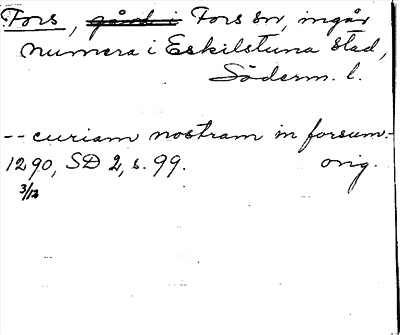 Fors, gård i Fors sn, ingår
numera i Eskilstuna stad,
Söderm. l.
-- curiam nostram in forsum -
1290, SD 2, s. 99. orig.
3/12